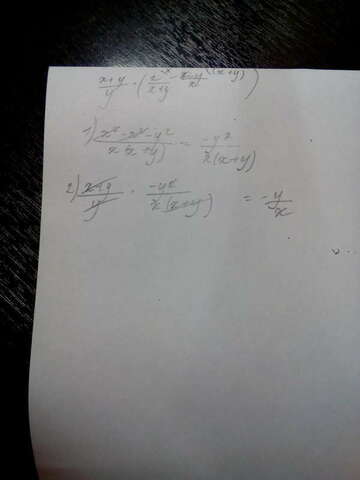 x+y/y · (x/x+y - x-y/x)
1) x² - x² - y² / x(x+y) = -y² / x(x+y)
2) x+y/y · -y² / x(x+y) = -y/x